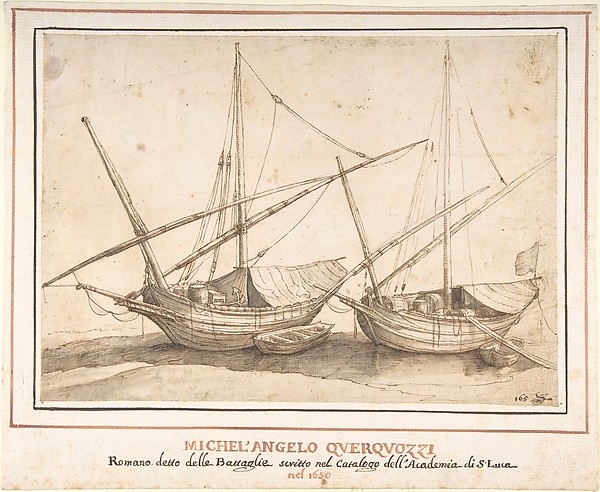 165
MICHEL'ANGELO QVERQVOZZI
Romano detto delle Battaglie scritto nel Catalogo dell'Academia di S. Luca
nel 1650